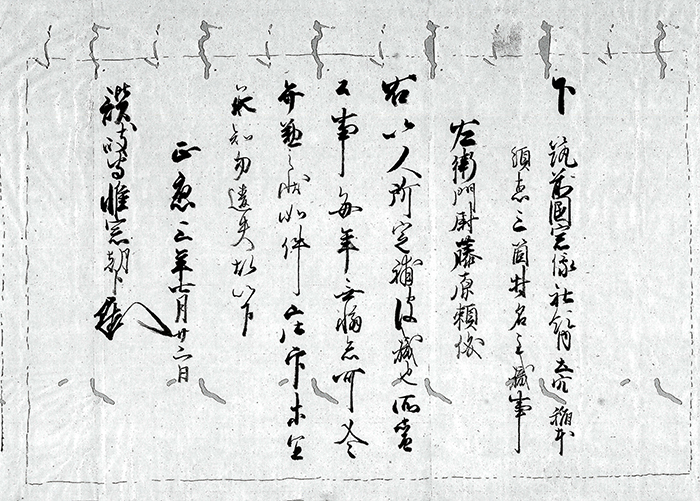 下 筑前國宗像社領 稲本
須恵三箇村名主職事
左衛門尉藤原頼俊
右以人所定補彼職也所當
公事毎年無懈怠可令
弁勤之状如件庄官等宜
承知勿遺失故以下
正應三年七月廿二日
讃岐守惟宗朝臣